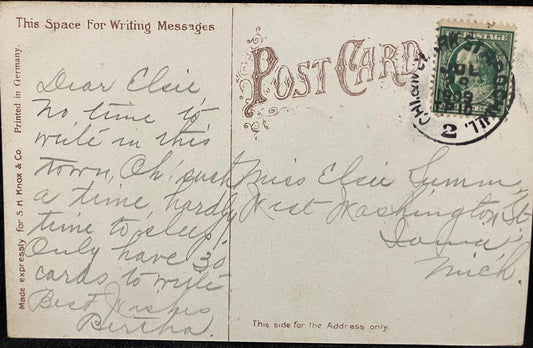 This Space For Writing Messages
Dear Elsie
No time to
write in this
town, Oh! such
a time, hardly
time to sleep!
Only have 30
cards to write
Best Wishes
Bertha.
Made expressly for S. H. Knox & Co. Printed in Germany.
POST CARD
Miss Elsie
West Washington St.
Iowa
Mich.
This side for the Address only.
POSTAGE
2